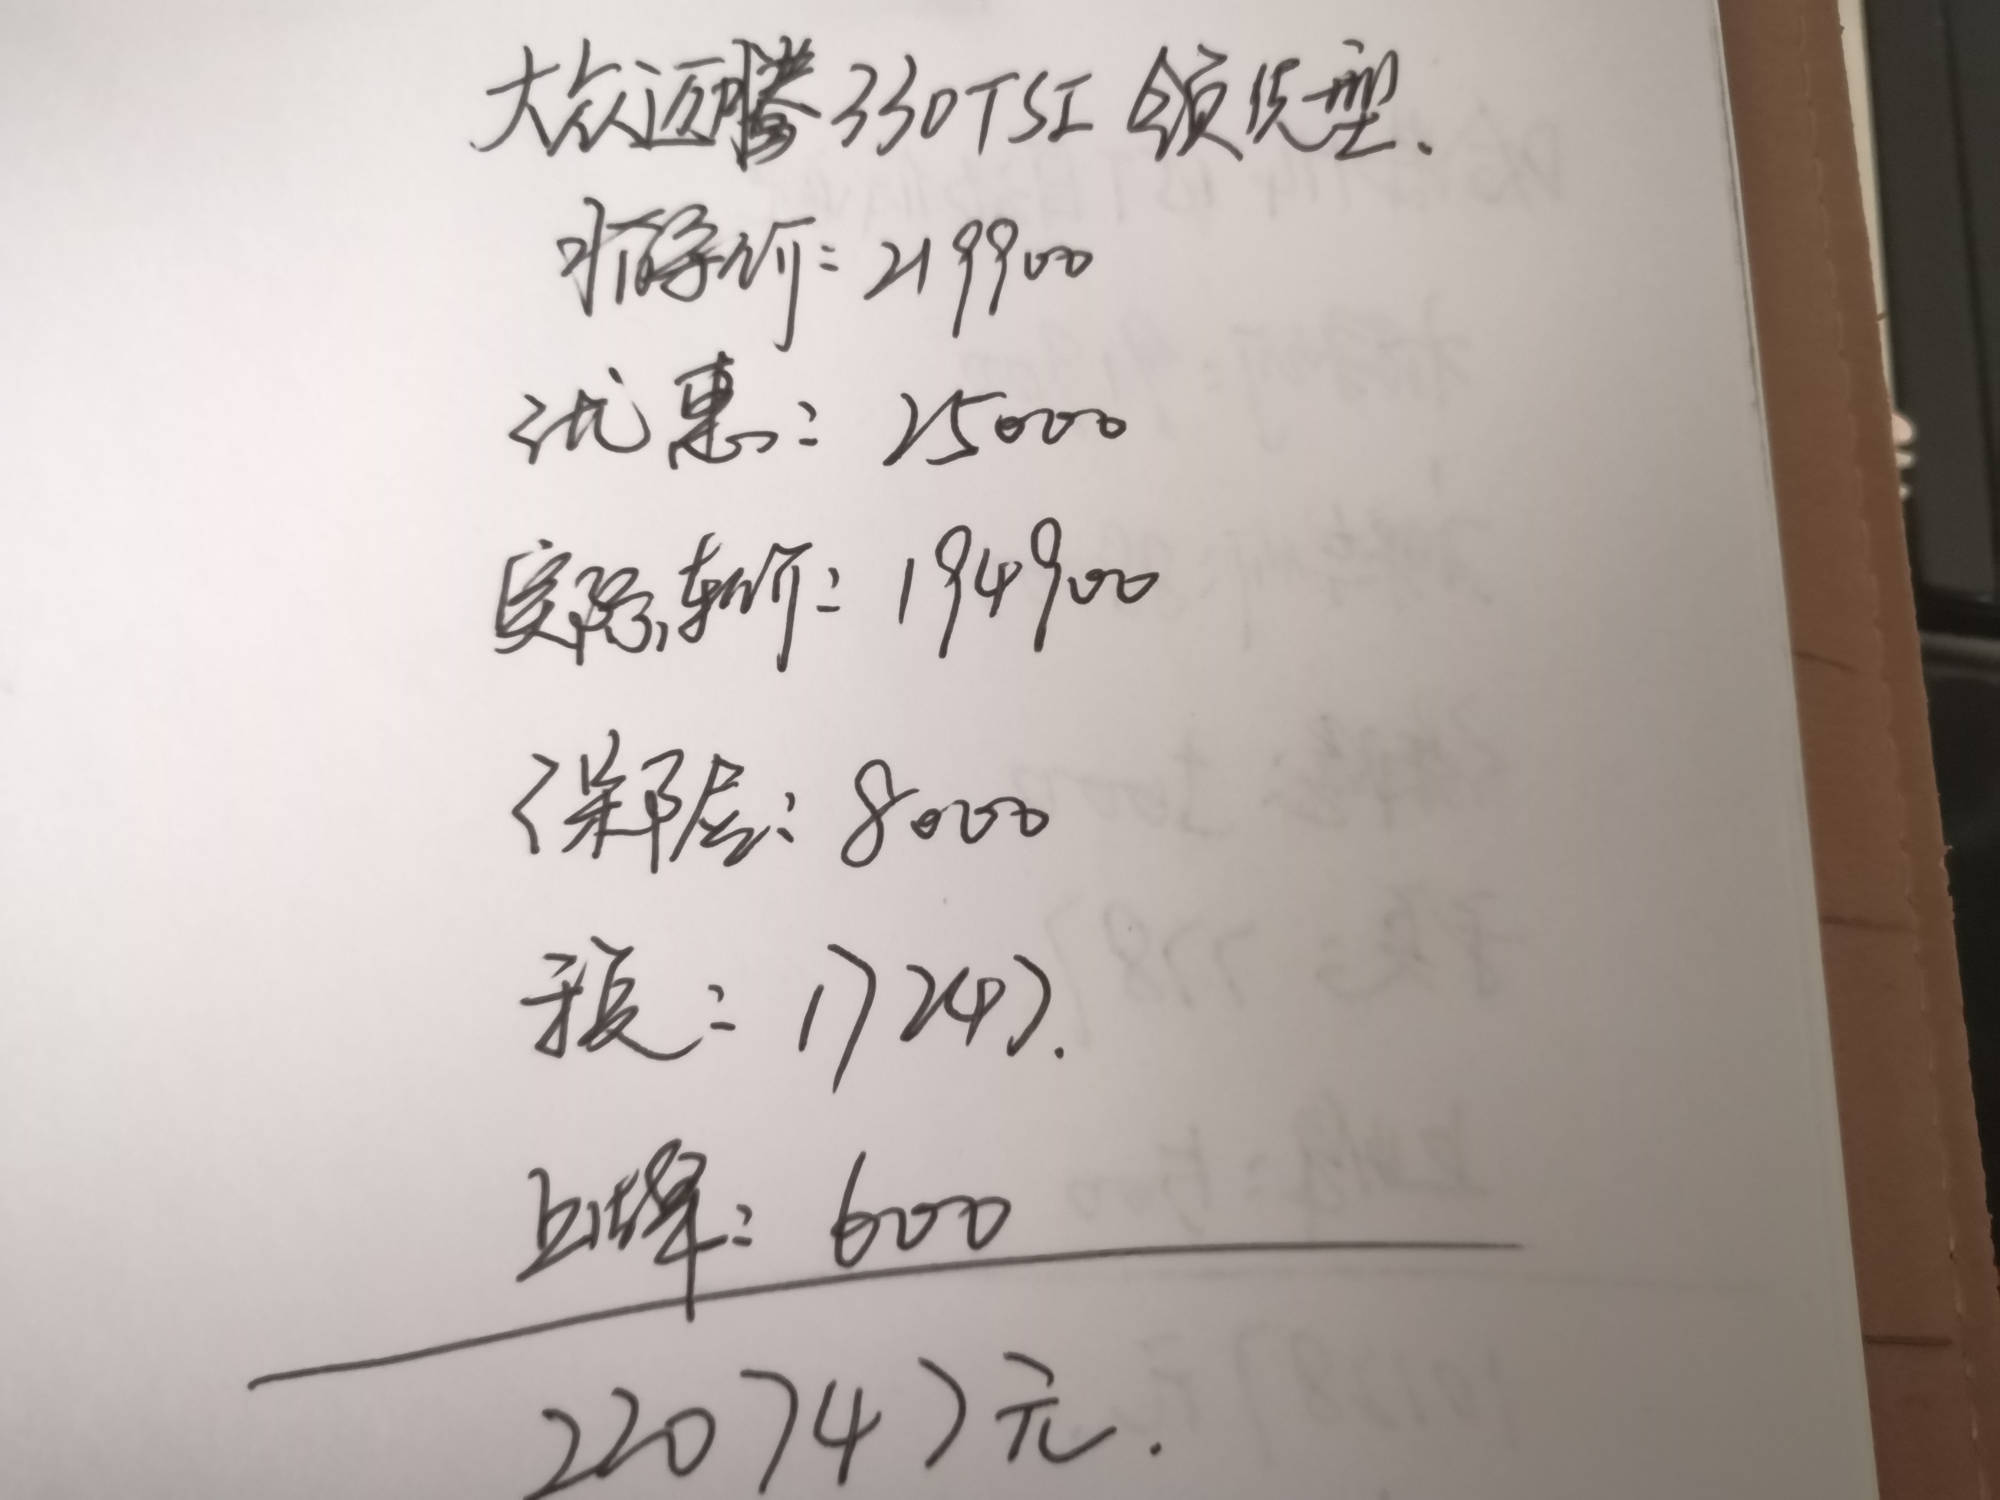 大众迈腾330TSI 领先型.
指导价:219900
优惠:25000
实际车价:194900
保险:8000
税:17247.
上牌:600
220747元.